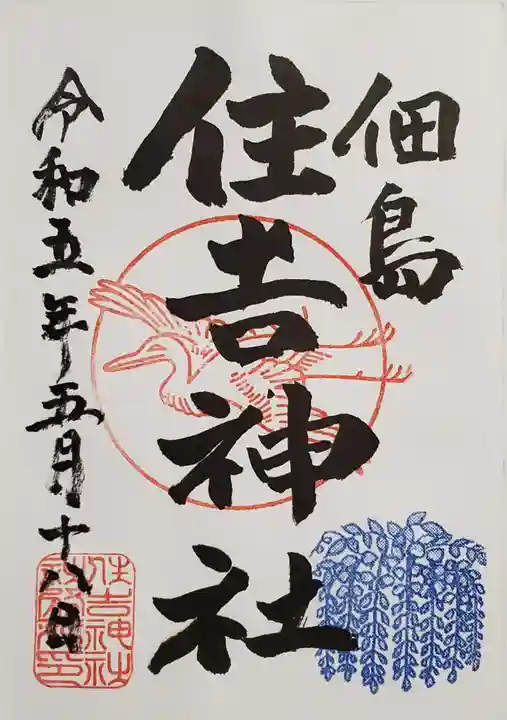 佃島
住吉神社
令和五年五月十八日
住吉神社